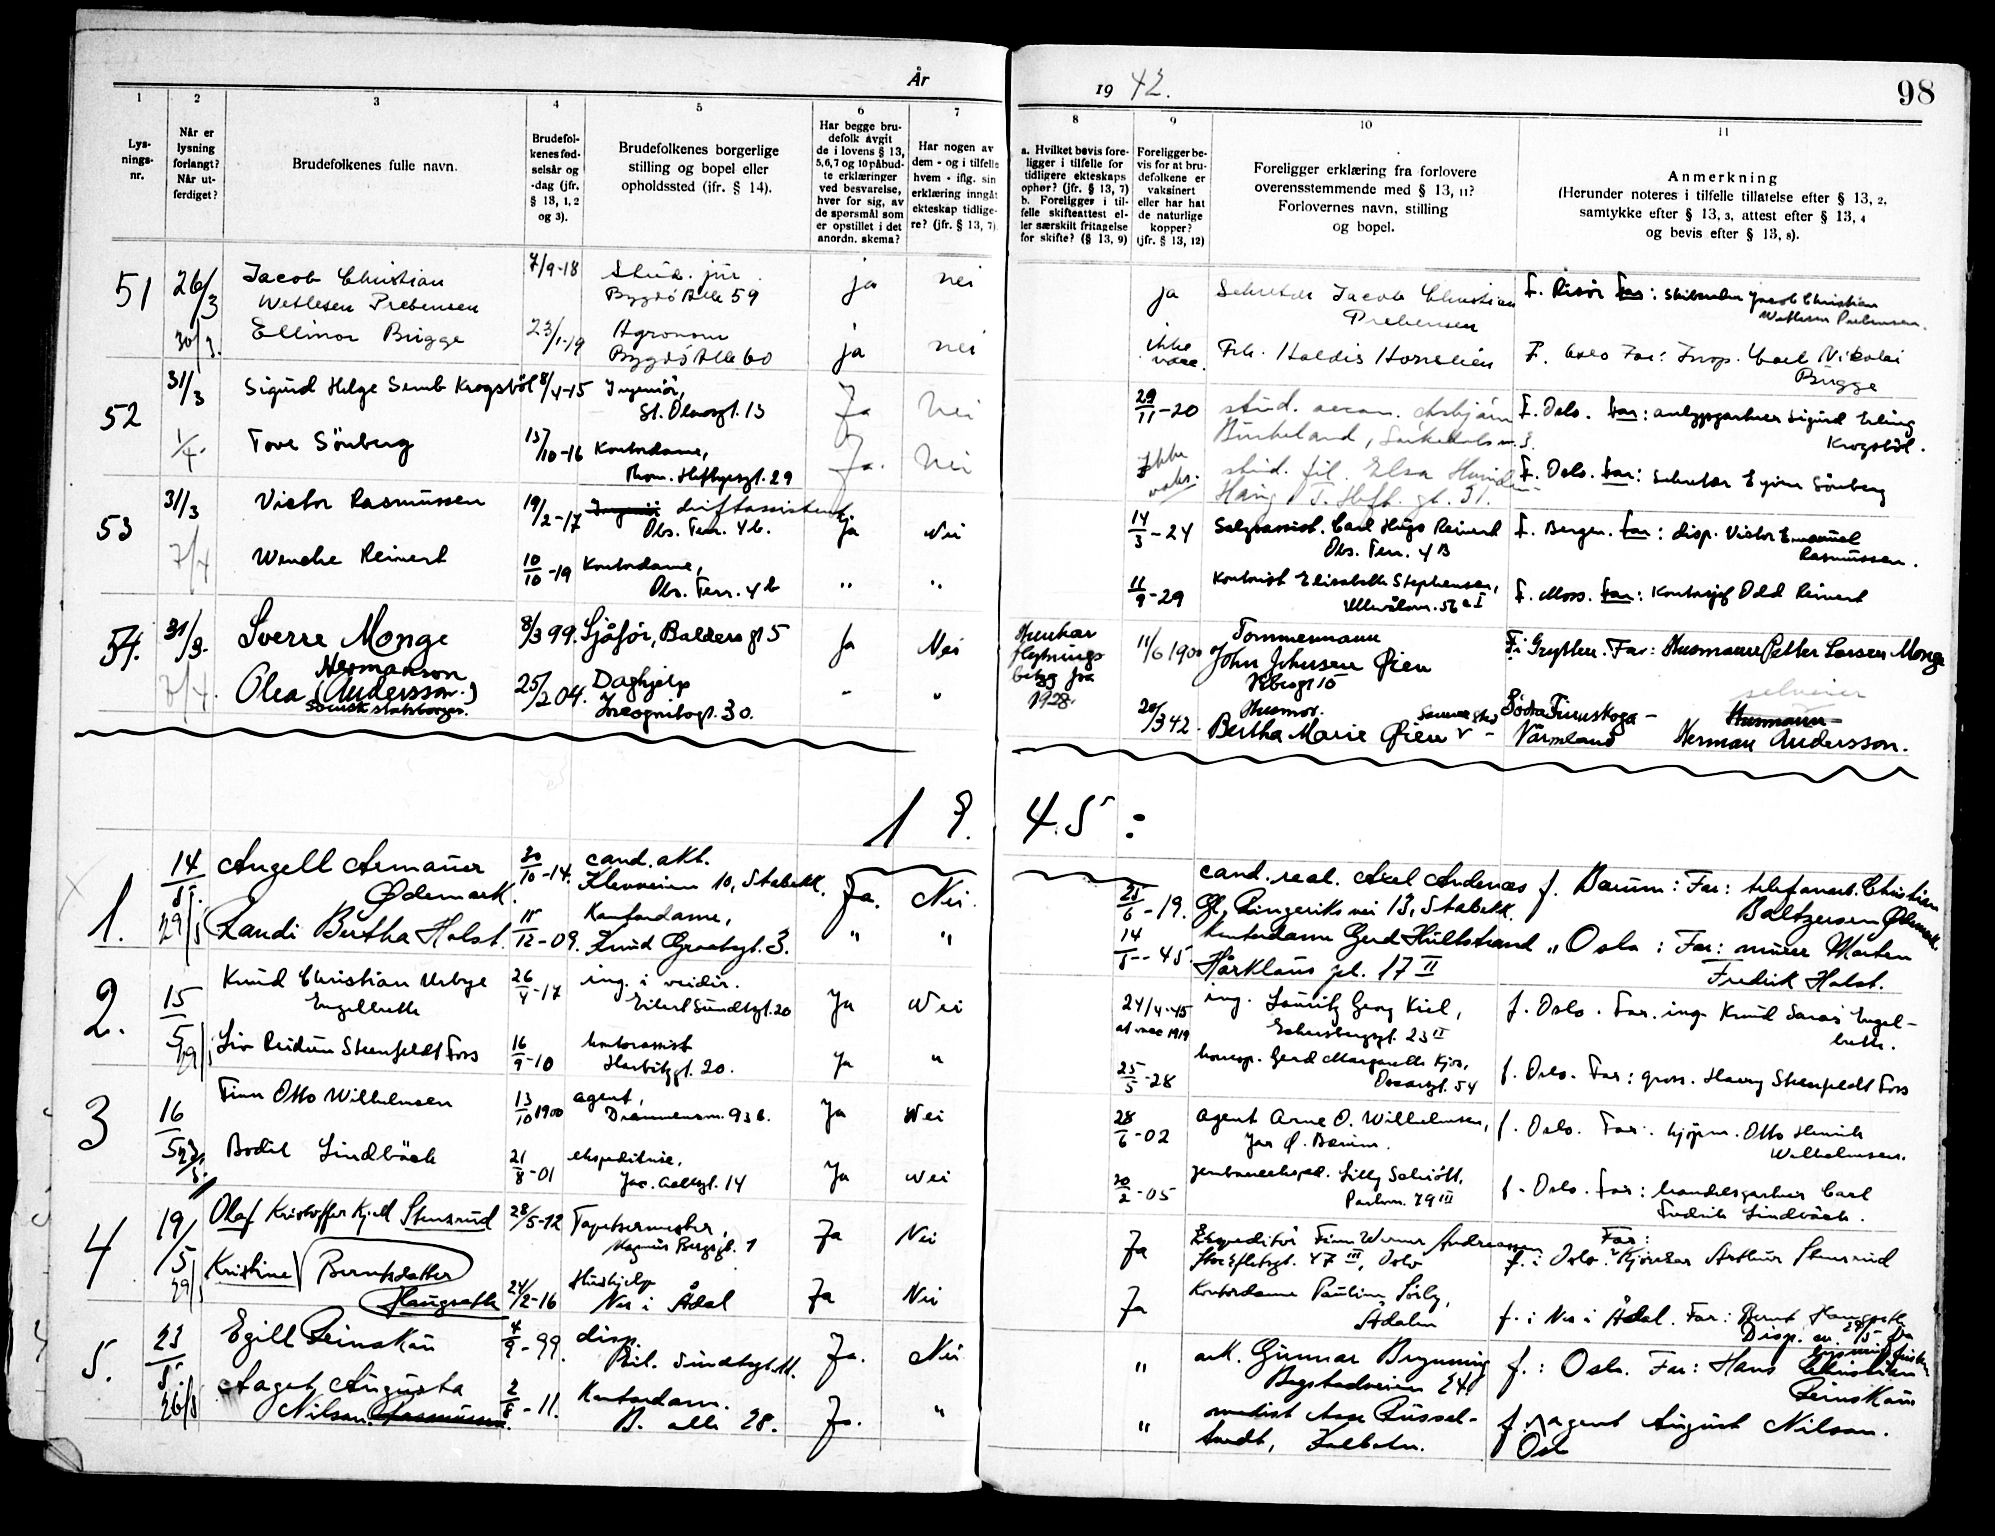 År 19 42.
98
1
Lys-
nings-
nr.
2
Når er
lysning
forlangt?
Når ut-
ferdiget?
3
Brudefolkenes fulle navn.
4
Brudefol-
kenes fød-
selsår og
-dag (jfr.
§ 13, 1, 2
og 3).
5
Brudefolkenes borgerlige
stilling og bopel eller
opholdssted (jfr. § 14).
6
Har begge bru-
defolk avgit
de i lovens § 13,
5,6,7 og 10 påbud-
te erklæringer
ved besvarelse,
hver for sig, av
de spørsmål som
er opstillet i det
anordn. skema?
7
Har nogen av
dem - og i tilfelle
hvem - iflg. sin
erklæring inngåt
ekteskap tidlige-
re? (jfr. § 13, 7)
8
a. Hvilket bevis fore-
ligger i tilfelle for
tidligere ekteskaps
ophør? (jfr. § 13, 7)
b. Foreligger i til-
felle skifteattest el-
ler særskilt fritagelse
for skifte? (§ 13, 9)
9
Foreligger be-
vis for at bru-
defolkene er
vaksinert
eller har hat
de naturlige
kopper?
(jfr. § 13, 12)
10
Foreligger erklæring fra forlovere
overensstemmende med § 13, 11?
Forlovernes navn, stilling
og bopel.
11
Anmerkning
(Herunder noteres i tilfelle tillatelse efter § 13, 2,
samtykke efter § 13, 3, attest efter § 13, 4
og bevis efter § 13, 8).
51 26/3 Jacob Christian
Wetlesen Prebensen 7/9-18 Stud. jur.
Bygdø Alle 59 ja nei ja Sekretær Jacob Christian
Prebensen F. Risør Far: skibsreder Jacob Christian
Wetlesen Prebensen.
30/3. Ellinor Bugge 23/1-19 Agronom
Bygdø Alle 60 ja nei ikke
vacc. Frk. Haldis F. Oslo Far: Insp. Carl Nikolai
Bugge
52 31/3 Sigurd Helge Semb Krogstöl 8/4-15 Ingeniör,
St. Olavsgt. 13 Ja Nei 29/11-20 stud. oecon. Asbjörn
Birkeland, F. Oslo. Far: anleggsgartner Sigurd Erling
Krogstöl.
1/4. Tove Sönberg 13/10-16 Kontordame,
Thom. Heftyesgt. 29 Ja. Nei Ikke
vaks. stud. fil. Elsa
Haug, T. Heft. gt. 31. F. Oslo. Far: Sekretær Ejnar Sönberg
53 31/3 Victor Rasmussen 19/2-17 driftsassistent.
Obs. Terr. 4 b. Ja Nei 14/3-24 Salgsassist. Carl Hugo Reinert
Obs. Terr. 4 B F. Bergen. Far: disp. Victor Emanuel
Rasmussen.
7/4 Wenche Reinert 10/10-19 Kontordame,
Obs. Terr. 4 b " " 11/9-29 Kontorist Elisabeth Stephensen,
Ullevålsvn. 56 c I F. Moss. Far: Kontorsjef Odd Reinert
54. 31/3. Sverre Monge 8/3 99. Sjåfør, Balders gt 5 Ja Nei Hun har
flytnings
betyg fra
1928. 11/6 1900 Tømmermann
John Johnsen Øien
15 F. i Grytten. Far: Husmann Petter Larsen Monge
7/4. Hermanson
Olea (Andersson.)
Svensk statsborger. 25/2 04. Daghjelp
Incognitogt. 30. - " 20/3 42. Husmor.
Bertha Marie Øien Samme sted Södra Finnskoga -
Värmland selveier
Husmann
Herman Andersson.
19.45:
1. 14/5. Angell Armauer
Ødemark. 30/10-14. cand. akt.
Klevveien 10, Stabekk. Ja. Nei. 25/6-19. cand. real. Axel Andenæs
Gl. Ringeriks vei 13, Stabekk. f. Bærum: Far: telefonarb. Christian
Baltzersen Ødemark.
29/5 Randi Bertha Holst. 15/12-09. Kontordame,
Knud Graahsgt. 3. " " 14/5-45. kontordame Gerd Hultstrand
Hårklaus pl. 17 II " Oslo: Far: murer Morten
Fredrik Holst.
2. 15/5 Knud Christian Urbye
Engelbreth 26/4-17 ing. i veidir.
Eilert Sundtsgt. 20 Ja Nei 24/4-45
at vacc 1919 ing. Lauritz Georg Kiel,
Eckersbergsgt. 23 II f. Oslo. Far. ing. Knud Engel-
breth.
29/5 Liv Reidun Steenfeldt Foss 16/9-10 kontorassist
Harbitzgt. 20. Ja " 25/5-28 korresp. Gerd Margarethe
Oscarsgt. 54 f. Oslo. Far: gross. Harry Steenfeldt Foss
3 16/5 Finn Otto Wilhelmsen 13/10 1900 agent,
Drammensvn. 93 b. Ja Nei 28/6-02 agent Arne O. Wilhelmsen,
Jar Ø. Bærum. f. Oslo. Far: kjøpm. Otto Henrik
Wilhelmsen.
23/5. Bodil Lindbäck 21/8-01 ekspeditrise,
Jac. Aallsgt. 14 Ja Nei 20/2-05 Lilly Schiött,
Parkvn. 79 III f. Oslo. Far: handelsgartner Carl
Fredrik Lindbäck.
4 19/5 Olaf Kristoffer Kjell Stensrud 28/5-12 Tapetsermester,
Magnus Bergsgt. 7 Ja Nei Ja Ekspeditör Finn Werner Andreassen
47 III, Oslo Far:
f. i Oslo. Arthur Stensrud
29/5 Kristine Berntsdatter
Haugseth 24/2-16 Hushjelp
Nes i Ådal Ja Nei Ja Kontordame Pauline Sörby,
Ådalen f. i Nes i Ådal. Far: Bernt Haugseth
5. 23/5. Egill Reinskau 4/9-99. disp.
Eil. Sundtsgt. 11. Ja. Nei " ark. Gunnar Brynning
Bogstadveien 24 f.: Oslo. Far: Hans Christian
Reinskau
26/5 Aagot Augusta
Nilsen Rasmussen. 2/8-11. Kontordam.
B. alle 28. Ja. " " modist Aase Russel-
tvedt, Kolbotn. f. agent August Nilsen.
Osl